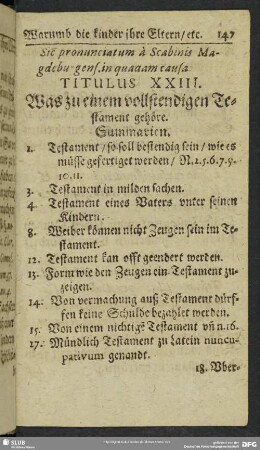 Warumb die kinder jhre Eltern/etc. 147
Sic pronunctatum à Scabinis Ma-
gdeburgens. in quadam causa
TITULUS XXIII.
Was zu einem vollstendigen Te-
stament gehöre.
Summarien.
1. Testament/so soll bestendig sein/wie es
müsse gefertiget werden/N.2.5.6.7.9.
10.11.
3. Testament in milden sachen.
4. Testament eines Vaters vnter seinen
Kindern.
8. Weiber können nicht Zeugen sein im Te-
stament.
12. Testament kan offt geendert werden.
13. Form wie den Zeugen ein Testament zu-
zeigen.
14. Von vermachung auß Testament dürf-
fen keine Schulde bezahlet werden.
15. Von einem nichtigẽ Testament vñ n.16.
17. Mündlich Testament zu Latein nuncu-
pativum genandt.
18. Vber-
SLUB
DFG